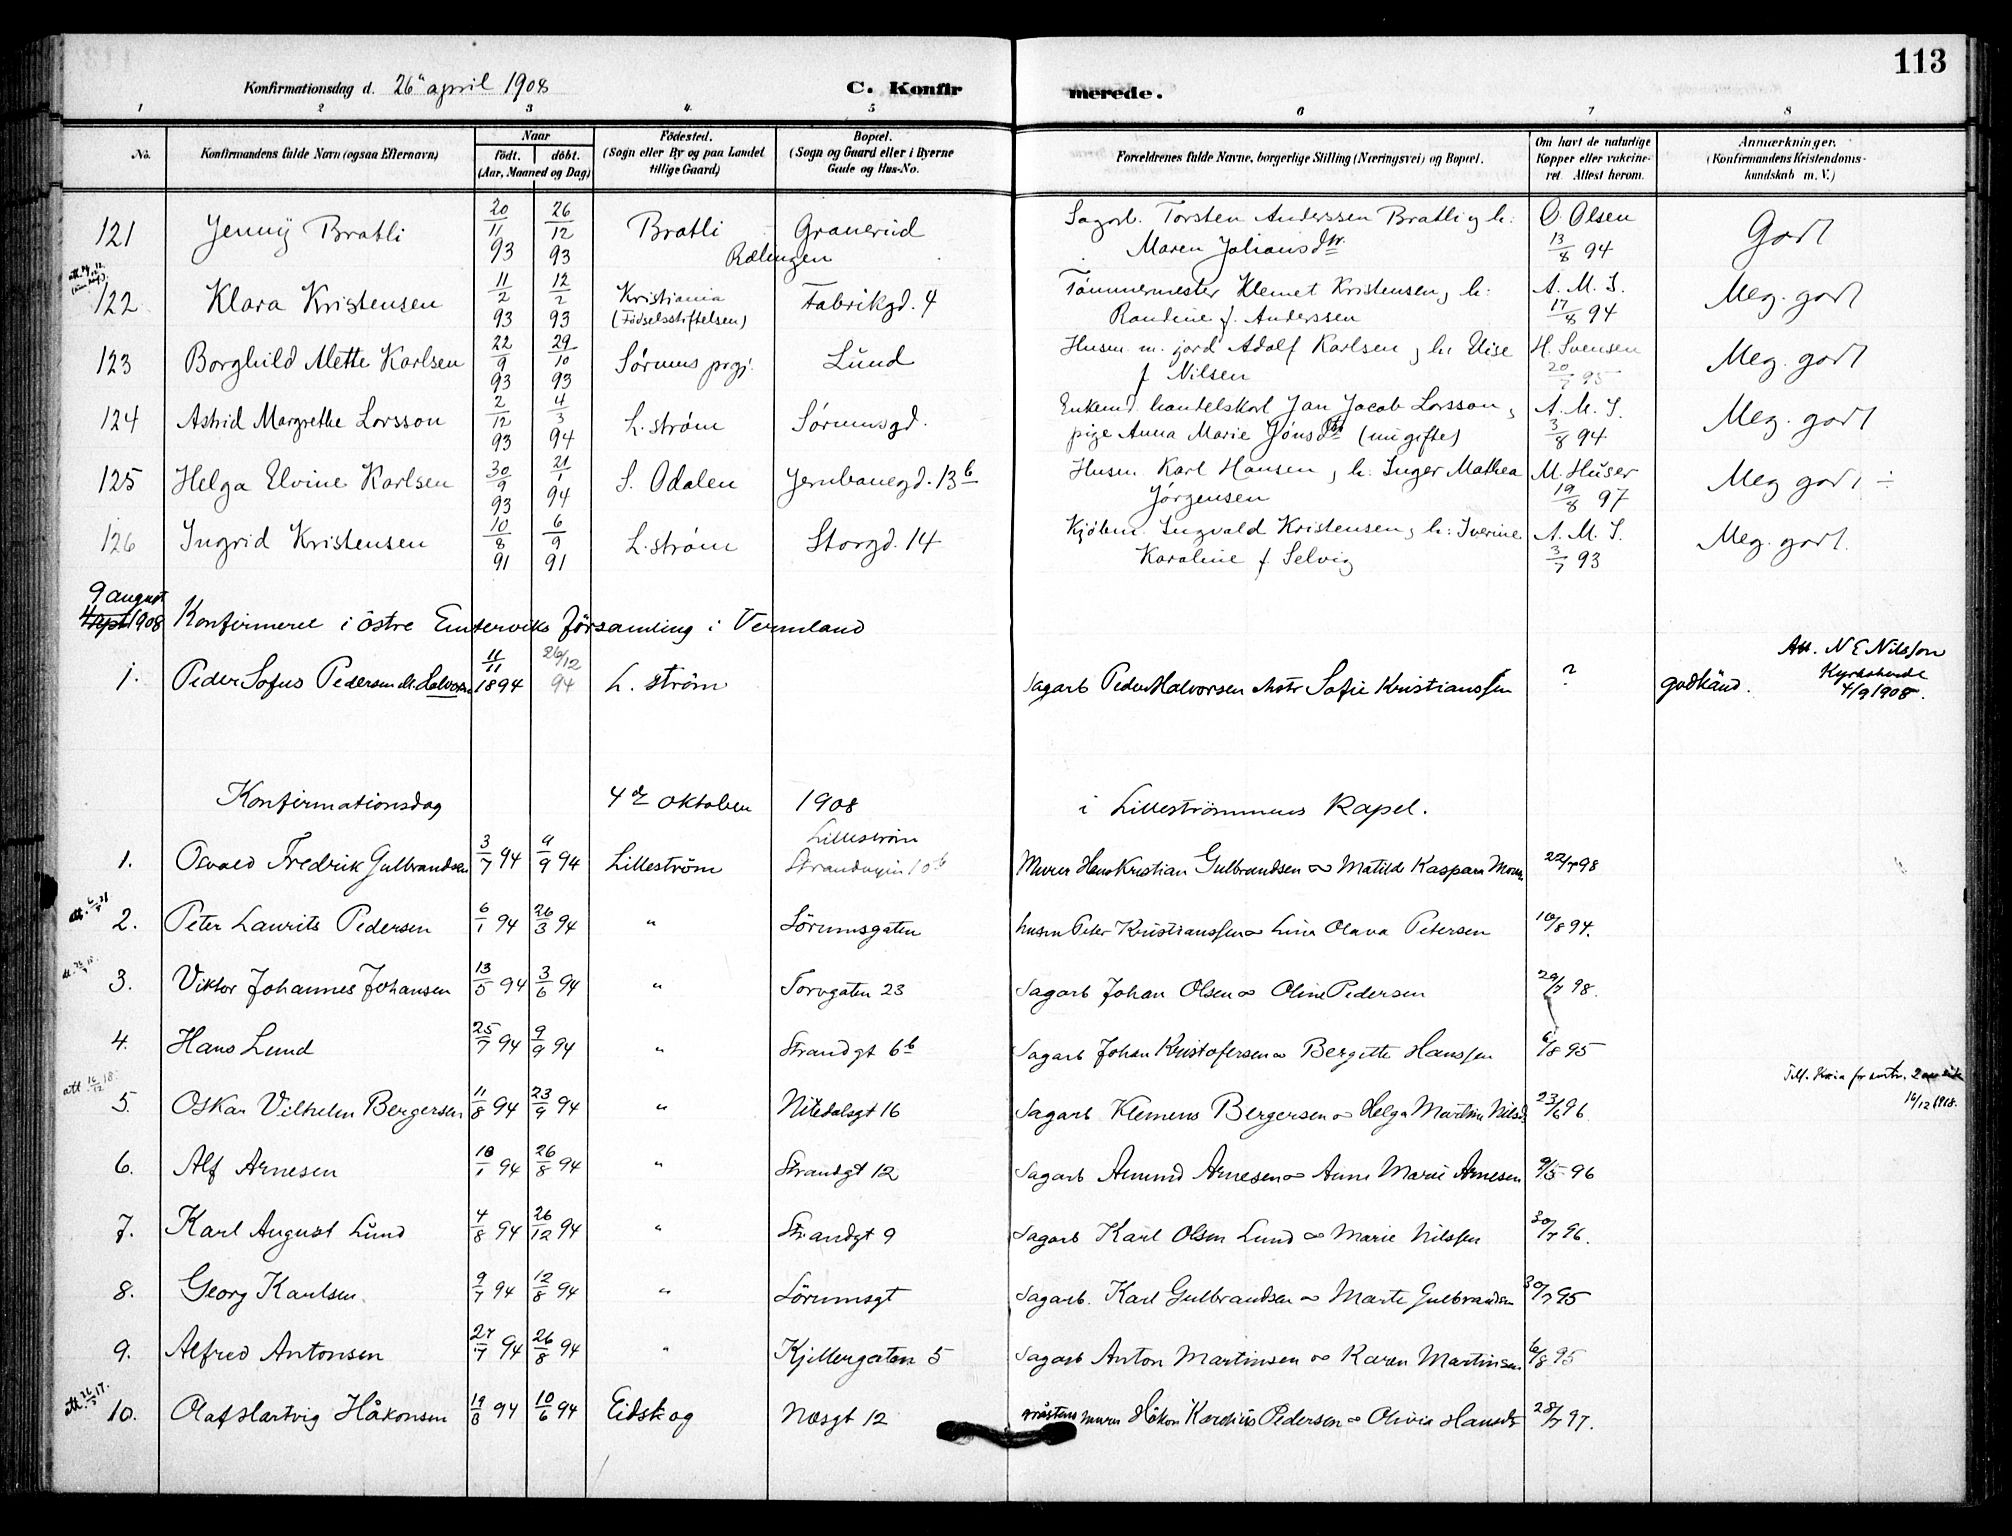 113
Konfirmationsdag d. 26de april 1908 C. Konfirmerede.
1 2 3 4 5 6 7 8
No. Konfirmandens fulde Navn (ogsaa Efternavn) Naar født. døbt. (Aar, Maaned og Dag) Fødested. (Sogn eller By og paa Landet tillige Gaard) Bopæl. (Sogn og Gaard eller i Byerne Gade og Hus-No. Forældrenes fulde Navne, borgerlige Stilling (Næringsvei) og Bopæl. Om havt de naturlige Kopper eller vakcineret. Attest herom. Anmærkninger. (Konfirmandens Kristendomskundskab m. V.)
121 Jenny Bratli 20/11 93 26/12 93 Bratli Granerud Rælingen Sagarb. Torsten Anderssen Bratli og h: Maren Johansdtr. O. Olsen 13/8 94 Godt
122 Klara Kristensen 11/2 93 12/2 93 Kristiania (Fødselsstiftelsen) Fabrikgd. 4 Tømmermester Klemet Kristensen, h: Randine f. Anderssen A. M. S. 17/8 94 Meg. godt
123 Borghild Alette Karlsen 22/9 93 29/10 93 Sørums prgj. Lund Husm. m. jord Adolf Karlsen, h: Elise f Nilsen H. Svensen 20/7 95 Meg. godt
124 Astrid Margrethe Larsson 2/12 93 4/3 94 L.strøm Sørumsgd. Enkemd. handelskarl Jan Jacob Larsson, pige Anna Marie Jønsdtr (ungifte) A. M. S. 3/8 94 Meg. godt
125 Helga Elvine Karlsen 30/9 93 21/1 94 S. Odalen Jernbanegd. 13b Husm. Karl Hansen, h: Inger Mathea Jørgensen M. Huser 19/8 97 Meg godt ÷
126 Ingrid Kristensen 10/8 91 6/9 91 L.strøm Storgd. 14 Kjøbm. Ingvald Kristensen, h: Iverine Karoline f Selvig A. M. S. 3/7 93 Meg. godt.
9 august
1908 Konfirmeret i östre Emterviks församling i Vermland
1. Peder Sofus Pedersen 11/11 1894 26/12 94 L. strøm Sagarb Peder Halvorsen Sofie Kristianssen ? godkänd. Att. N E Nilsson Kyrkoherde 4/9 1908.
Konfirmationsdag 4de oktober 1908 i Lilleströmmens Kapel.
1. Osvald Fredrik Gulbrandsen 3/7 94 9/9 94 Lilleström Lilleström Strandveien 10b Murer Hans Kristian Gulbrandsen ∞ Matilde Kaspara 22/7 98
2. Peter Laurits Pedersen 6/1 94 26/3 94 " Sörumsgaten husm Peter Kristianssen ∞ Lina Olava Petersen 10/8 94.
3. Viktor Johannes Johansen 13/5 94 3/6 94 " Torvgaten 23 Sagarb Johan Olsen ∞ Oline Pedersen 29/7 98.
4. Hans Lund 25/7 94 9/9 94 " Strandgt 6b Sagarb Johan Kristofersen ∞ Bergitte Hanssen 6/8 95
att 16/12 18. 5. Oskar Vilhelm Bergersen 11/8 94 23/9 94 " Nitedalsgt 16 Sagarb Klemens Bergersen ∞ Helga Martine Nilsd 23/6 96. 16/12 1918.
6. Alf Arnesen 18/1 94 26/8 94 " Strandgt 12 Sagarb Amund Arnesen ∞ Anne Marie Arnesen 9/5 96
7. Karl August Lund 4/8 94 26/12 94 " Strandgt 9 Sagarb Karl Olsen Lund ∞ Marie Nilssen 30/7 96.
8. Georg Karlsen 9/7 94 12/8 94 " Sörumsgt Sagarb. Karl Gulbrandsen ∞ Marte Gulbrandsen 30/7 95
9. Alfred Antonsen 27/7 94 26/8 94 " Kjellergaten 5 Sagarb Anton Martinsen ∞ Karen Martinsen 6/8 95
10. Olaf Hartvig Håkonsen 19/3 94 10/6 94 Eidskog Næsgt 12 murer Håkon Pedersen ∞ Olivia Hansdt 28/7 97.